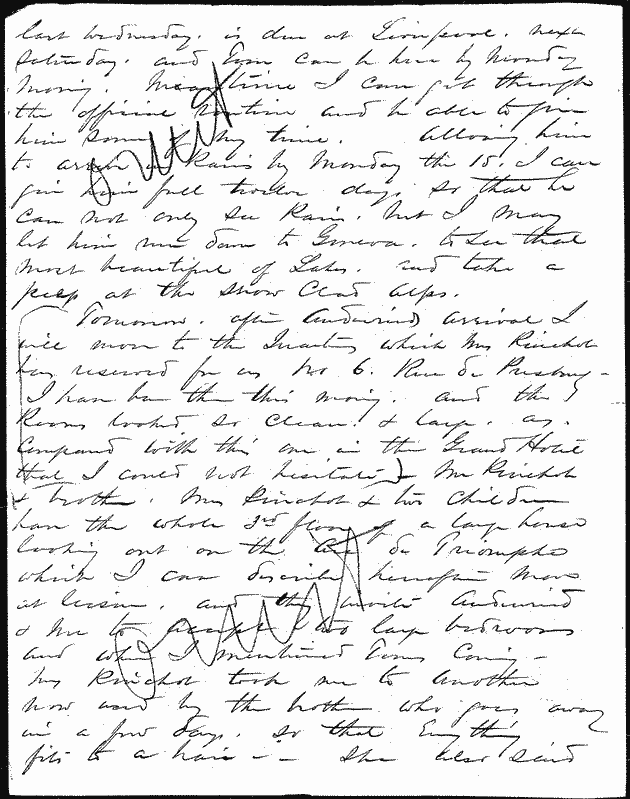 last Wednesday. is due at Liverpool. next
Saturday. and Tom can be here by Monday
morning. Meantime I can get through
the official routine and be able to give
him some of my time. Allowing him
to arrive at Paris by Monday the 15. I can
give him full twelve days, so that he
can not only see Paris. but I may
let him run down to Geneva. to see that
most beautiful of Lakes. and take a
peep at the snow clad Alps.
Tomorrow. after Audenried's arrival I
will move to the Quarters which Mrs Pinchot
has reserved for us No 6. Rue de Presburg -
I have been there this morning. and the
Rooms looked so clean. & large. as
compared with this one in the Grand Hotel
that I could not hesitate. Mr Pinchot
& brother. Mrs Pinchot & two children
have the whole 3rd floor of a large house
looking out on the Arc de Triomphe
which I can describe hereafter more
at leisure. and they invite Audenried
& me to accept two large bedrooms
and when I mentioned Toms coming -
Mrs Pinchot took me to another
now used by the brother who goes away
in a few days. so that Everything
fits to a hair - - She also said
omit
omit